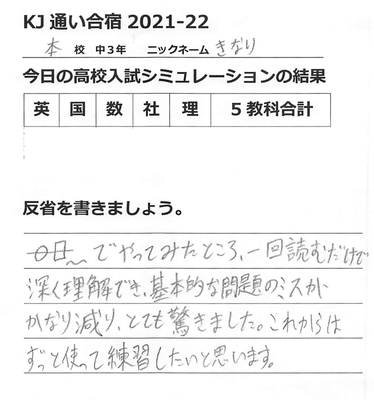 KJ通い合宿 2021-22
本 校 中3年 ニックネーム きなり
今日の高校入試シミュレーションの結果
英 国 数 社 理 5教科合計
反省を書きましょう。
でやってみたところ、一回読むだけで
深く理解でき、基本的な問題のミスが
かなり減り、とても驚きました。これからは
ずっと使って練習したいと思います。